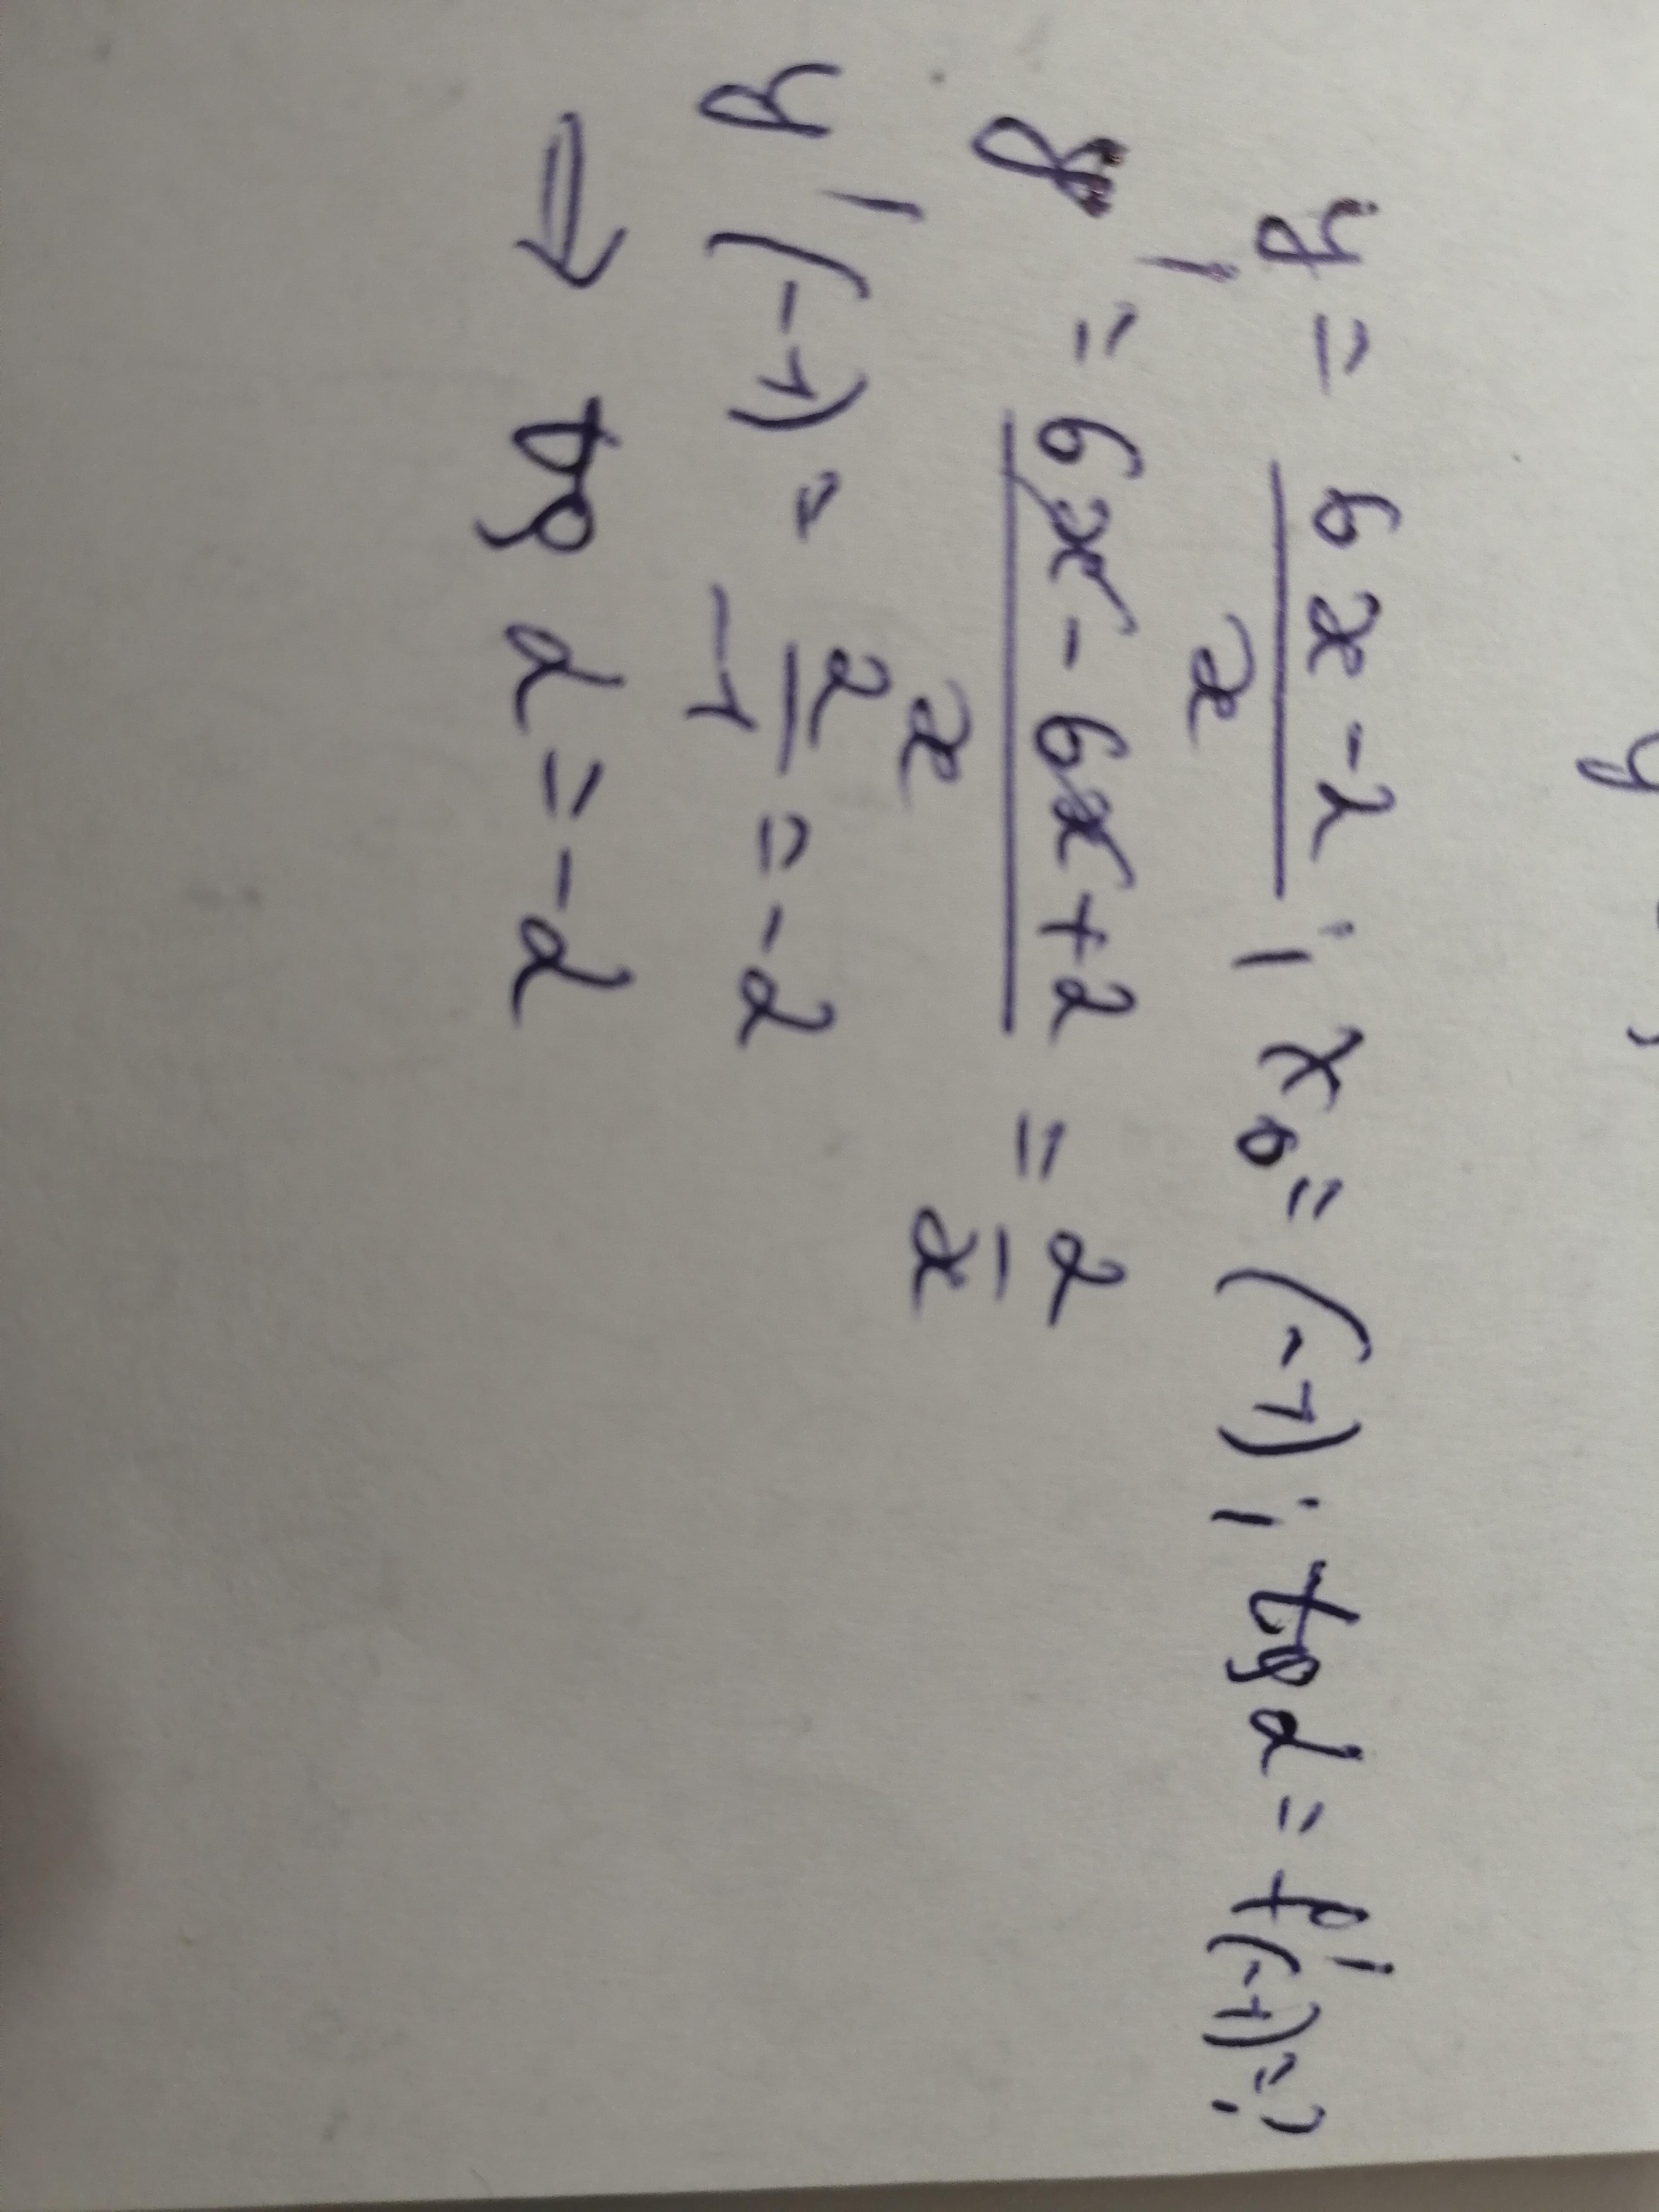 y = (6x - 2)/x ; x₀ = (-1) ; tg α = f'(-1) = ?
y' = (6x - 6x + 2)/x = 2/x
y'(-1) = 2/-1 = -2
⇒ tg α = -2